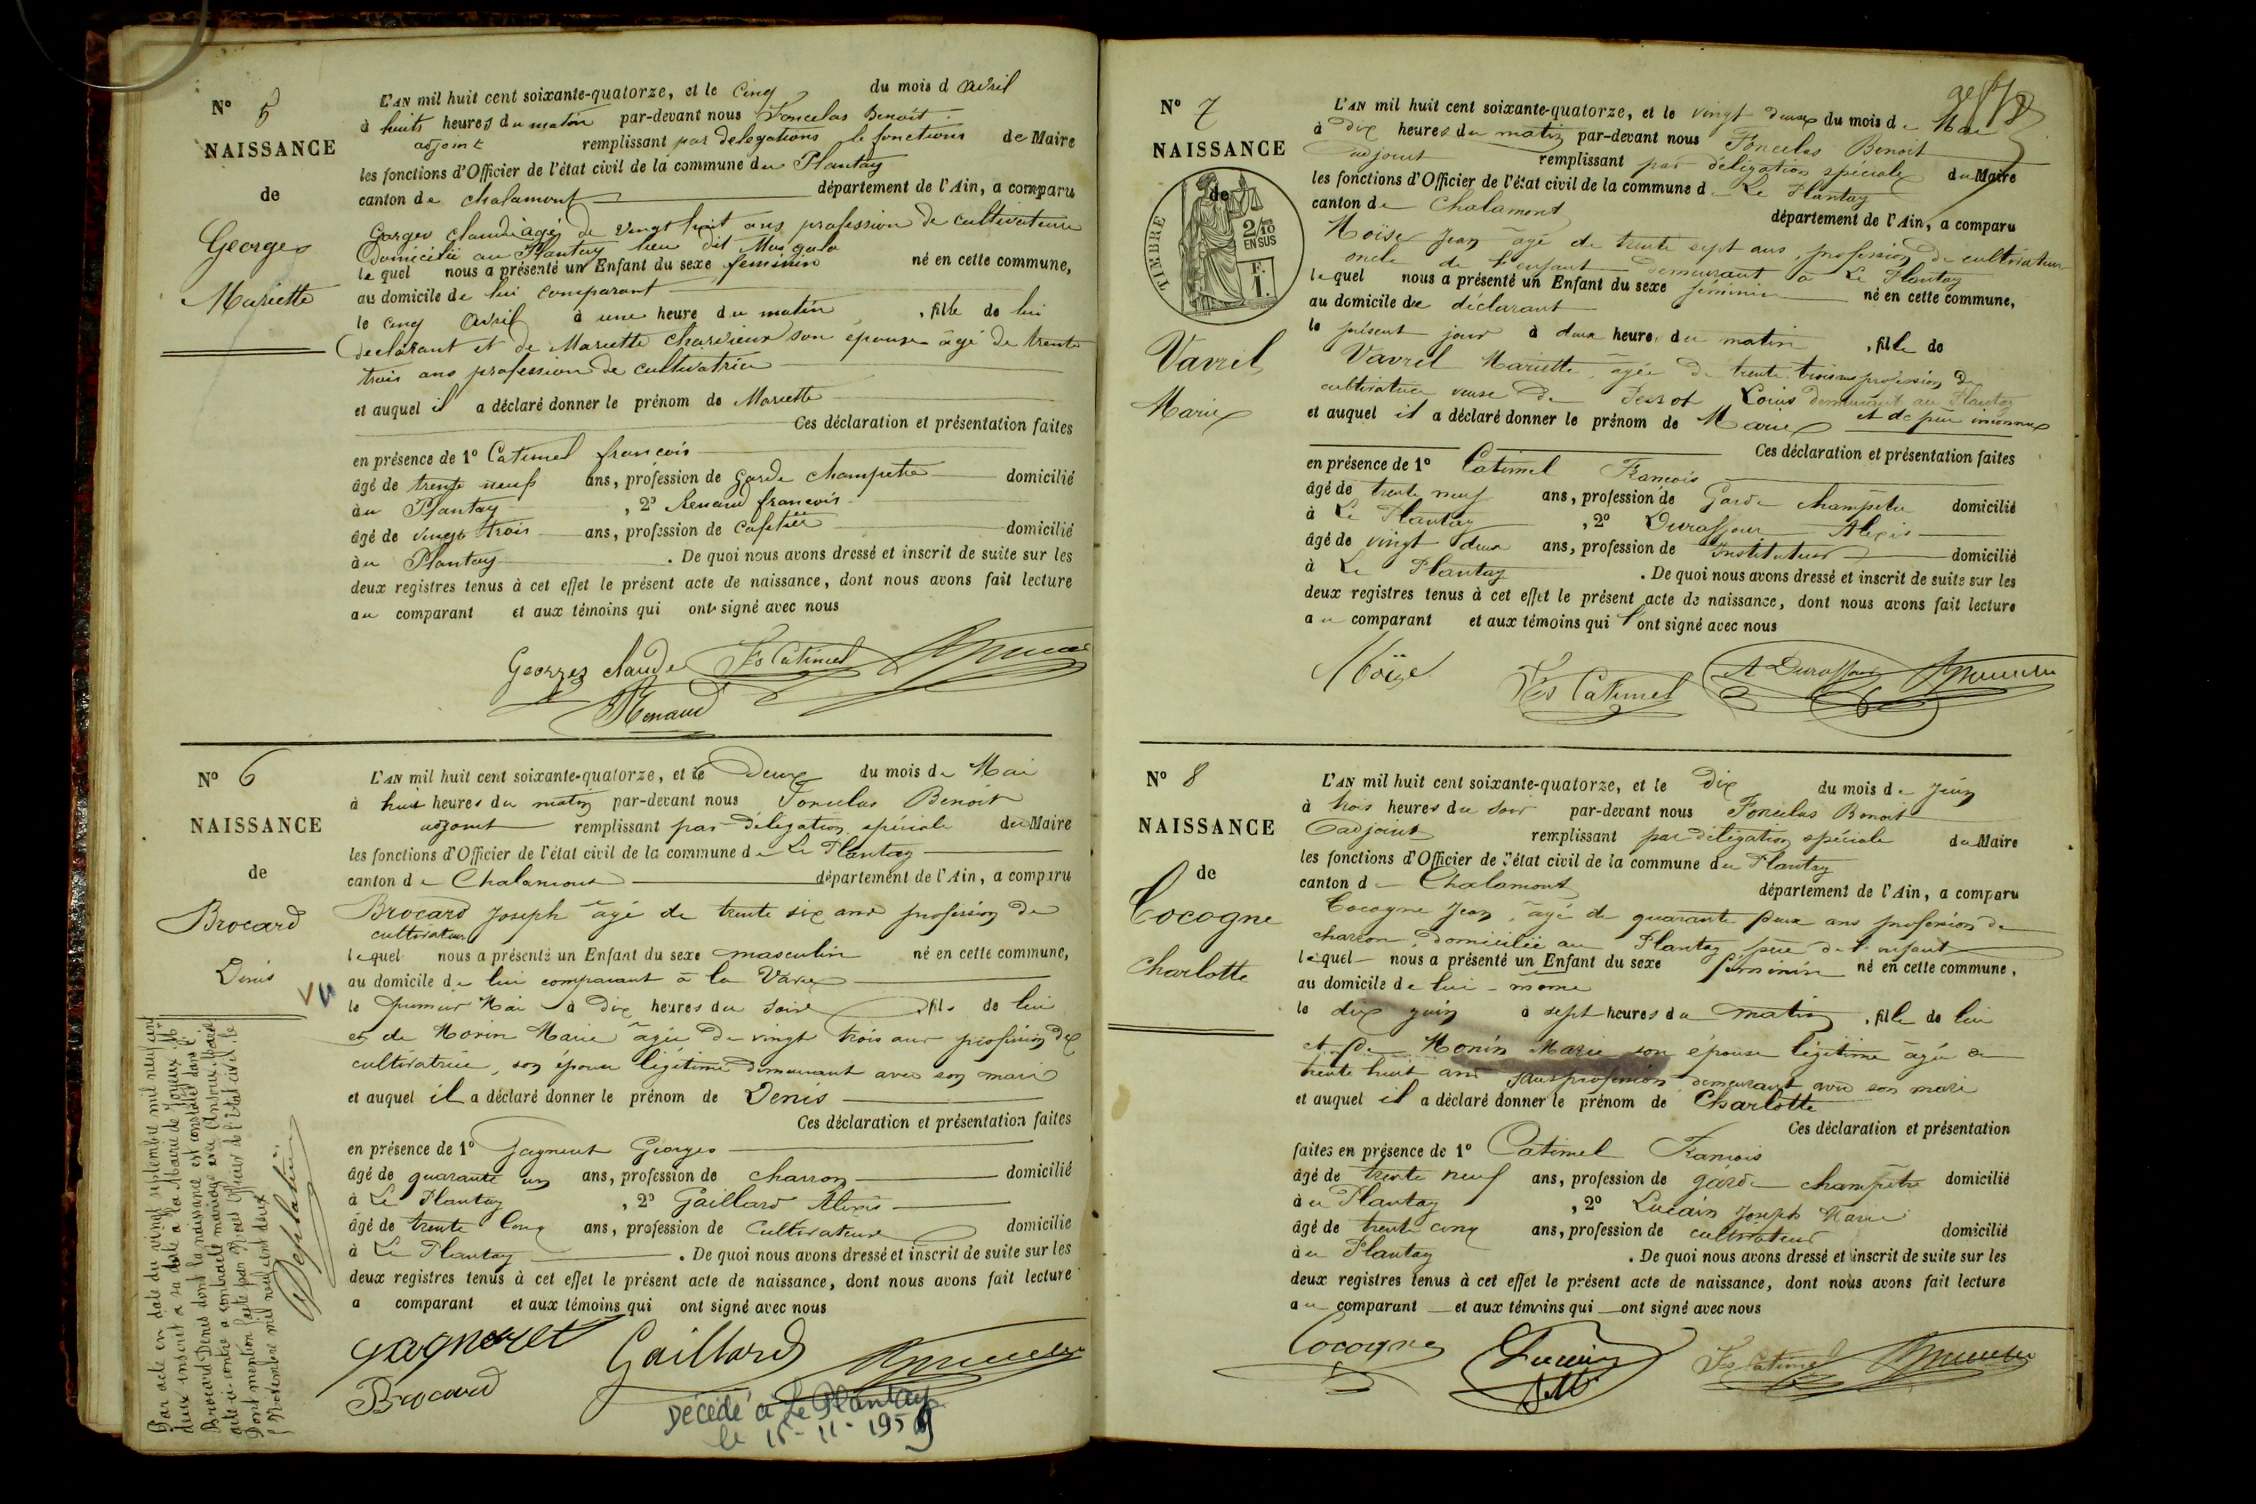 N° 5
NAISSANCE
de
Georges
Mariette
L'AN mil huit cent soixante-quatorze, et le cinq du mois d avril
à huits heures du matin par-devant nous Foncelas Benoit
adjoint remplissant par delegations le fonctions de Maire
les fonctions d'Officier de l'état civil de la commune du Plantay
canton de chalamont département de l'Ain, a comparu
Georges claude âgé de vingt huit ans profession de cultivateur
Domicilié au Plantay lieu dit
le quel nous a présenté un Enfant du sexe feminin né en cette commune,
au domicile de lui comparant
le cinq Avril à une heure du matin, fille de lui
declarant et de Mariette charvieux son epouse âgé de trente
trois ans profession de cultivatrice
et auquel il a déclaré donner le prénom de Mariette
Ces déclaration et présentation faites
en présence de 1° Catimel francois
âgé de trente neuf ans, profession de garde champetre domicilié
au Plantay, 2° Renaud francois
âgé de vingt trois ans, profession de cafetier domicilié
au Plantay. De quoi nous avons dressé et inscrit de suite sur les
deux registres tenus à cet effet le présent acte de naissance, dont nous avons fait lecture
au comparant et aux témoins qui ont signé avec nous
Georges claude Fs Catimel
Renaud
N° 6
NAISSANCE
de
Brocard
Denis
VU
L'AN mil huit cent soixante-quatorze, et le Deux du mois de Mai
à huit heures du matin par-devant nous Foncelas Benoit
adjoint remplissant par délégation spéciale du Maire
les fonctions d'Officier de l'état civil de la commune de Le Plantay
canton de Chalamont département de l'Ain, a comparu
Brocard Joseph âgé de trente six ans profession de
cultivateur
lequel nous a présenté un Enfant du sexe masculin né en cette commune,
au domicile de lui comparant à la
le premier Mai à dix heures du soir fils de lui
et de Morin Marie âgée de vingt trois ans profession de
cultivatrice, son épouse légitime demeurant avec son mari
et auquel il a déclaré donner le prénom de Denis
Ces déclaration et présentation faites
en présence de 1° Georges
âgé de quarante un ans, profession de charron domicilié
à Le Plantay, 2° Gaillard Alexis
âgé de trente cinq ans, profession de cultivateur domicilié
à Le Plantay. De quoi nous avons dressé et inscrit de suite sur les
deux registres tenus à cet effet le présent acte de naissance, dont nous avons fait lecture
a comparant et aux témoins qui ont signé avec nous
Gaillard
Brocard
Décédé à Le Plantay
le 15-11-1959
Par acte en date du vingt septembre mil neuf cent
deux inscrit à sa date à la Mairie de Joyeux, Mr
Brocard Denis dont la naissance est constatée dans l'
acte ci-contre a contracté mariage avec Marie
Dont mention faite par Nous Officier de l'état civil le
Novembre mil neuf cent deux
N° 7
NAISSANCE
de
TIMBRE
2/10
EN SUS
F.
1.
Vavrel
Marie
L'AN mil huit cent soixante-quatorze, et le vingt deux du mois de Mai
à Dix heures du matin par-devant nous Foncelas Benoit
adjoint remplissant par délégation spéciale du Maire
les fonctions d'Officier de l'état civil de la commune d Le Plantay
canton de Chalamont département de l'Ain, a comparu
Moïse Jean âgé de trente sept ans, profession de cultivateur
oncle de l'enfant demeurant à Le Plantay
lequel nous a présenté un Enfant du sexe féminin né en cette commune,
au domicile du déclarant
le présent jour à deux heures du matin, fille de
Vavrel Mariette âgée de trente trois ans profession de
cultivatrice veuve de Perrot Louis demeurant au Plantay
et auquel il a déclaré donner le prénom de Marie et de père inconnu
Ces déclaration et présentation faites
en présence de 1° Catimel Francois
âgé de trente neuf ans, profession de Garde champetre domicilié
à Le Plantay, 2° Duraffour Alexis
âgé de vingt deux ans, profession de Instituteur domicilié
à Le Plantay. De quoi nous avons dressé et inscrit de suite sur les
deux registres tenus à cet effet le présent acte de naissance, dont nous avons fait lecture
au comparant et aux témoins qui l'ont signé avec nous
Moïse Fs Catimel A Duraffour
N° 8
NAISSANCE
de
Cocogne
charlotte
L'AN mil huit cent soixante-quatorze, et le Dix du mois de Juin
à trois heures du soir par-devant nous Foncelas Benoit
adjoint remplissant par délégation spéciale du Maire
les fonctions d'Officier de l'état civil de la commune du Plantay
canton de Chalamont département de l'Ain, a comparu
Cocogne Jean, âgé de quarante deux ans profession de
charron, domicilié au Plantay père de l'enfant
lequel nous a présenté un Enfant du sexe féminin né en cette commune,
au domicile de lui-même
le dix juin à sept heures du matin, fille de lui
et de Monin Marie son épouse légitime âgée de
trente huit ans sans profession demeurant avec son mari
et auquel il a déclaré donner le prénom de Charlotte
Ces déclaration et présentation
faites en présence de 1° Catimel Francois
âgé de trente neuf ans, profession de garde champêtre domicilié
au Plantay, 2° Lucain Joseph Marie
âgé de trente cinq ans, profession de cultivateur domicilié
au Plantay. De quoi nous avons dressé et inscrit de suite sur les
deux registres tenus à cet effet le présent acte de naissance, dont nous avons fait lecture
au comparant et aux témoins qui ont signé avec nous
Cocogne Lucain Fs Catimel